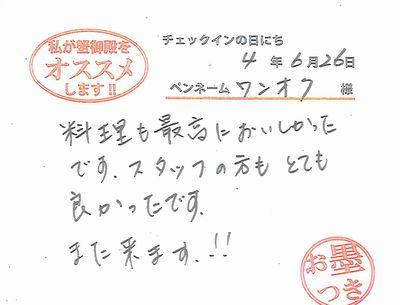 私が蟹御殿を
オススメ
します!!
チェックインの日にち
4 年 6月 26日
ペンネーム ワンオフ 様
料理も最高においしかった
です。スタッフの方もとても
良かったです。
また来ます。!!
お墨
つき